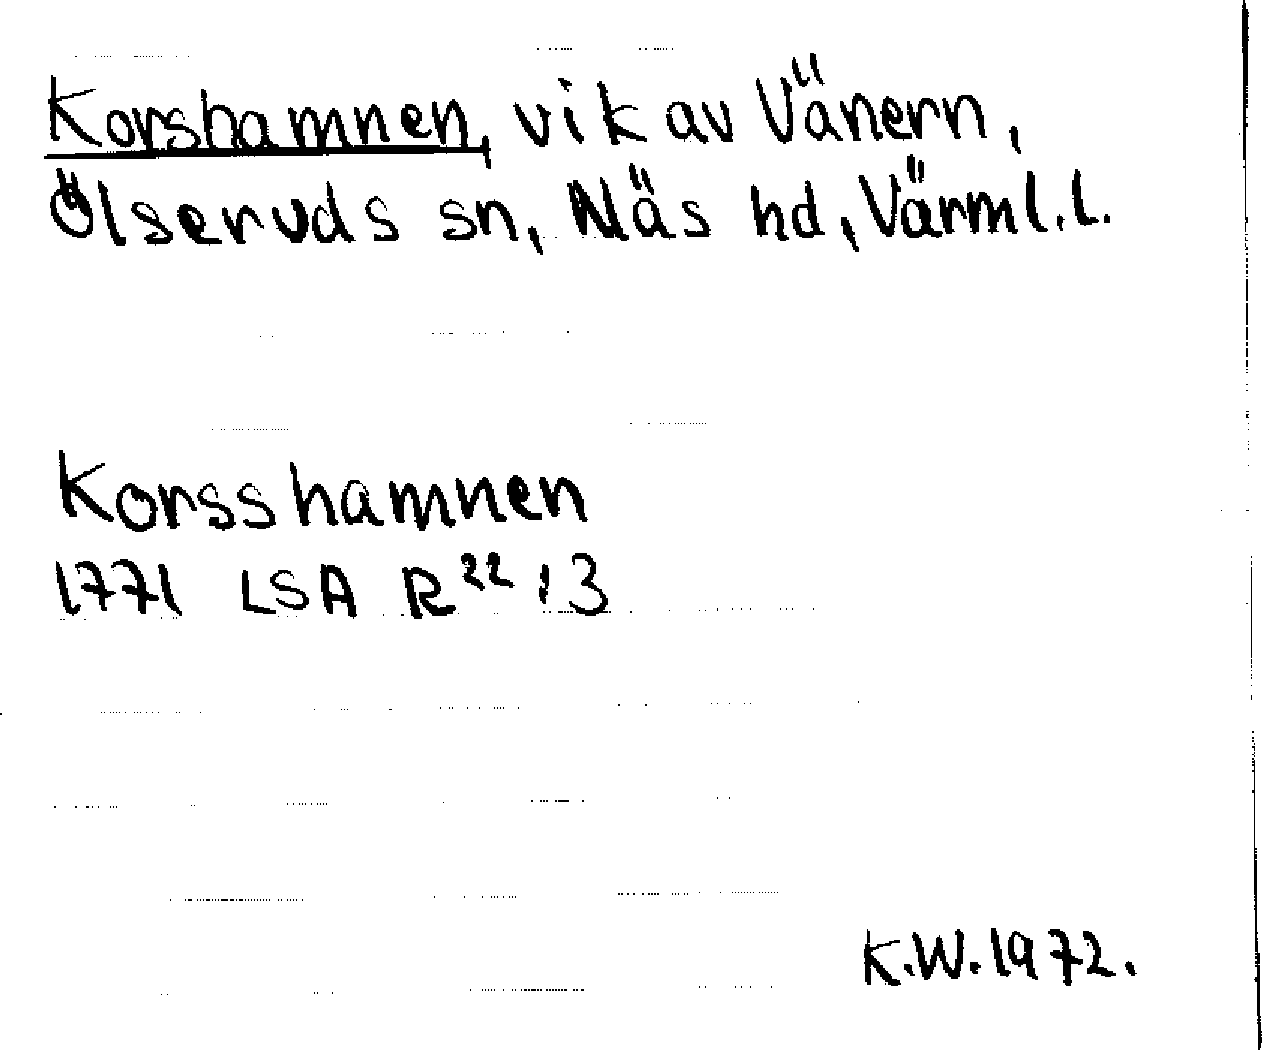 Korshamnen, vik av Vänern,
Ölseruds sn, Näs hd, Värml. l.
Korsshamnen
1771 LSA R22:3
K.W. 1972.